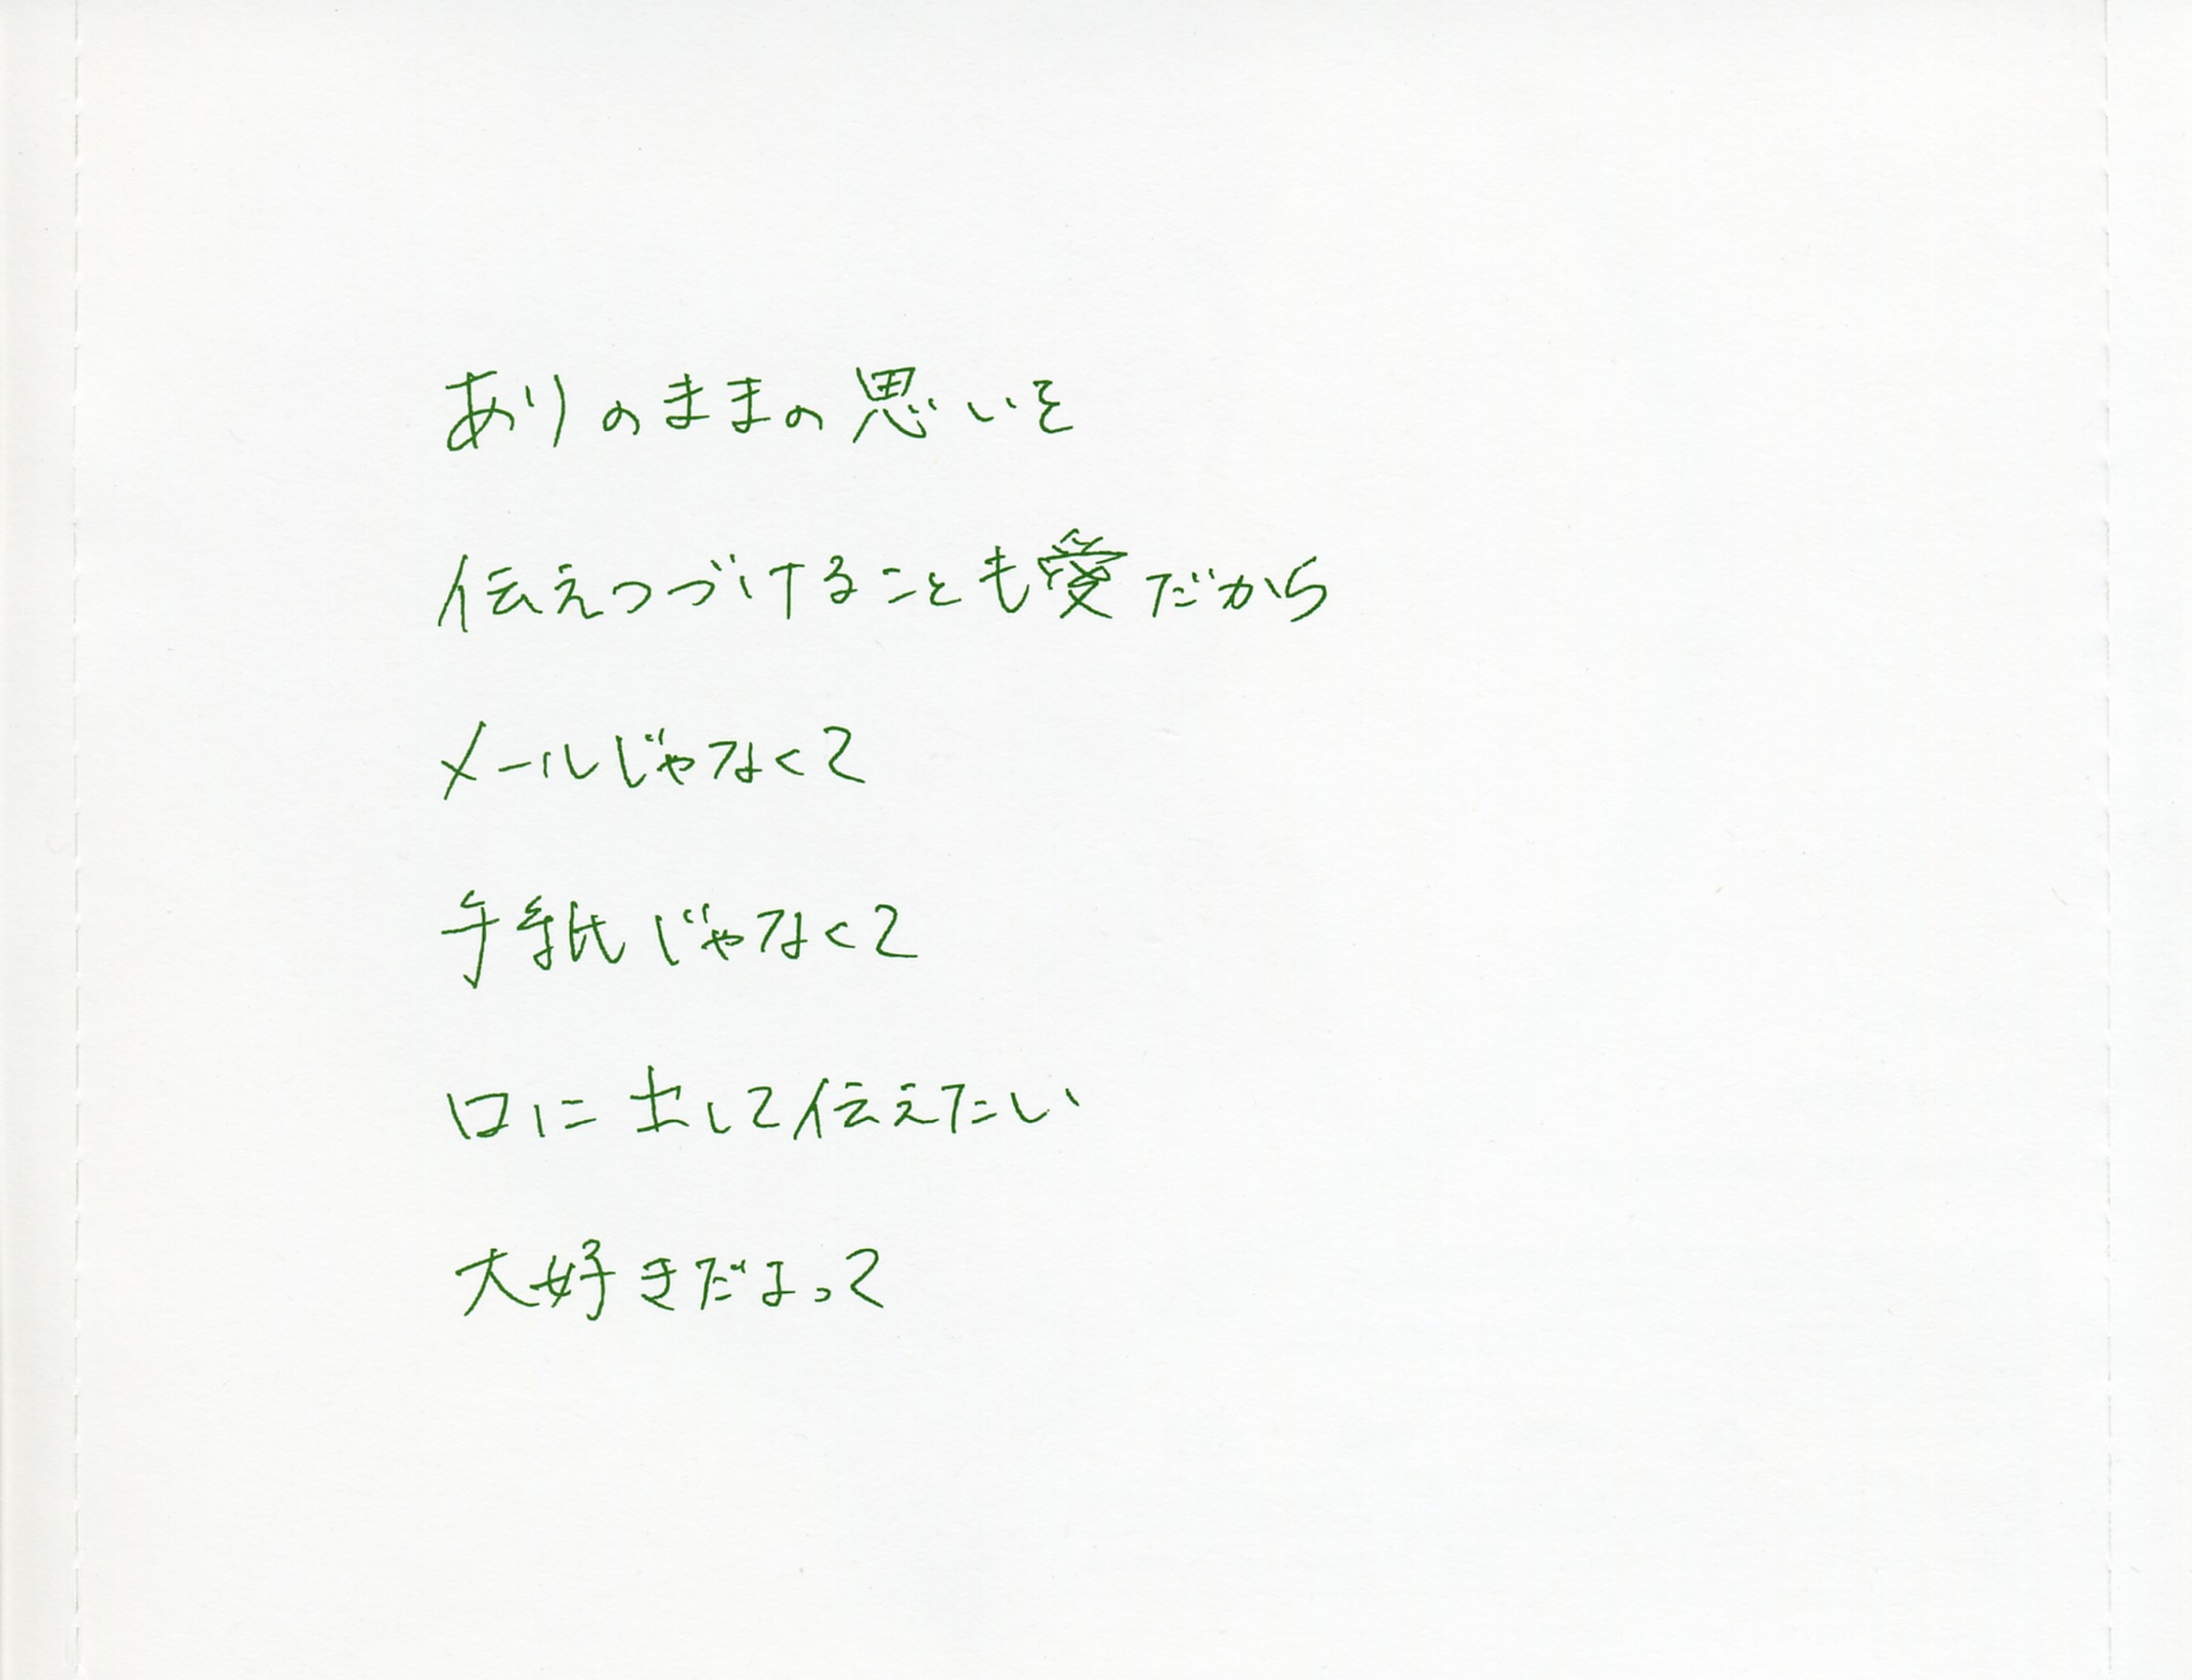 ありのままの思いを
伝えつづけることも愛だから
メールじゃなくて
手紙じゃなくて
口に出して伝えたい
大好きだよって